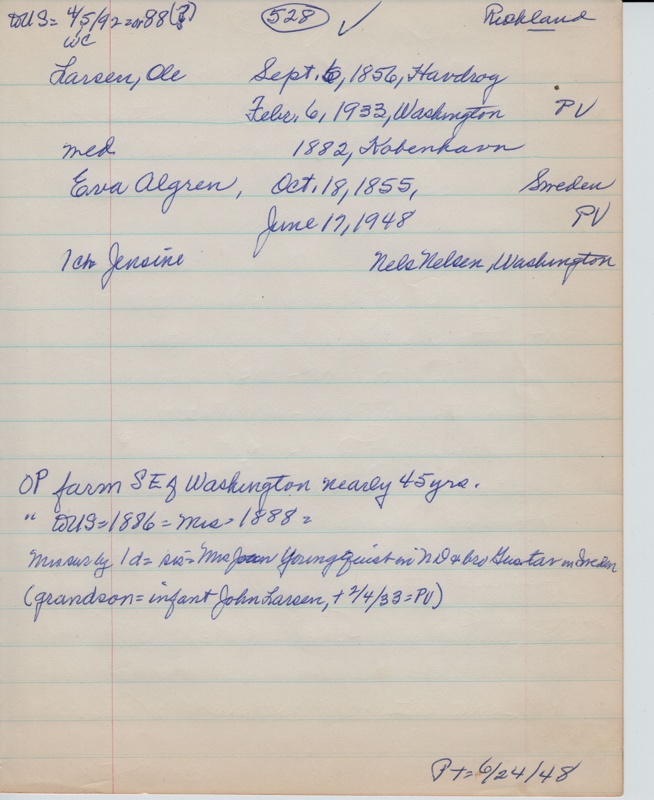 toUS = 4/5/92 = or 88 (?) 528 ✓ Richland
WC
Larsen, Ole Sept. 6, 1856, Havdrog
Febr. 6, 1933, Washington PV
med 1882, Kobenhavn
Eva Algren, Oct. 18, 1855, Sweden
June 17, 1948 PV
1 ch Jensine Nels Nelsen, Washington
OP farm SE of Washington nearly 45 yrs.
" toUS = 1886 = Mrs = 1888 =
Mrs surv by 1 d = sis = Mrs Youngquist in ND & bro Gustav in Sweden
(grandson = infant John Larsen, + 2/4/33 = PV)
P + = 6/24/48